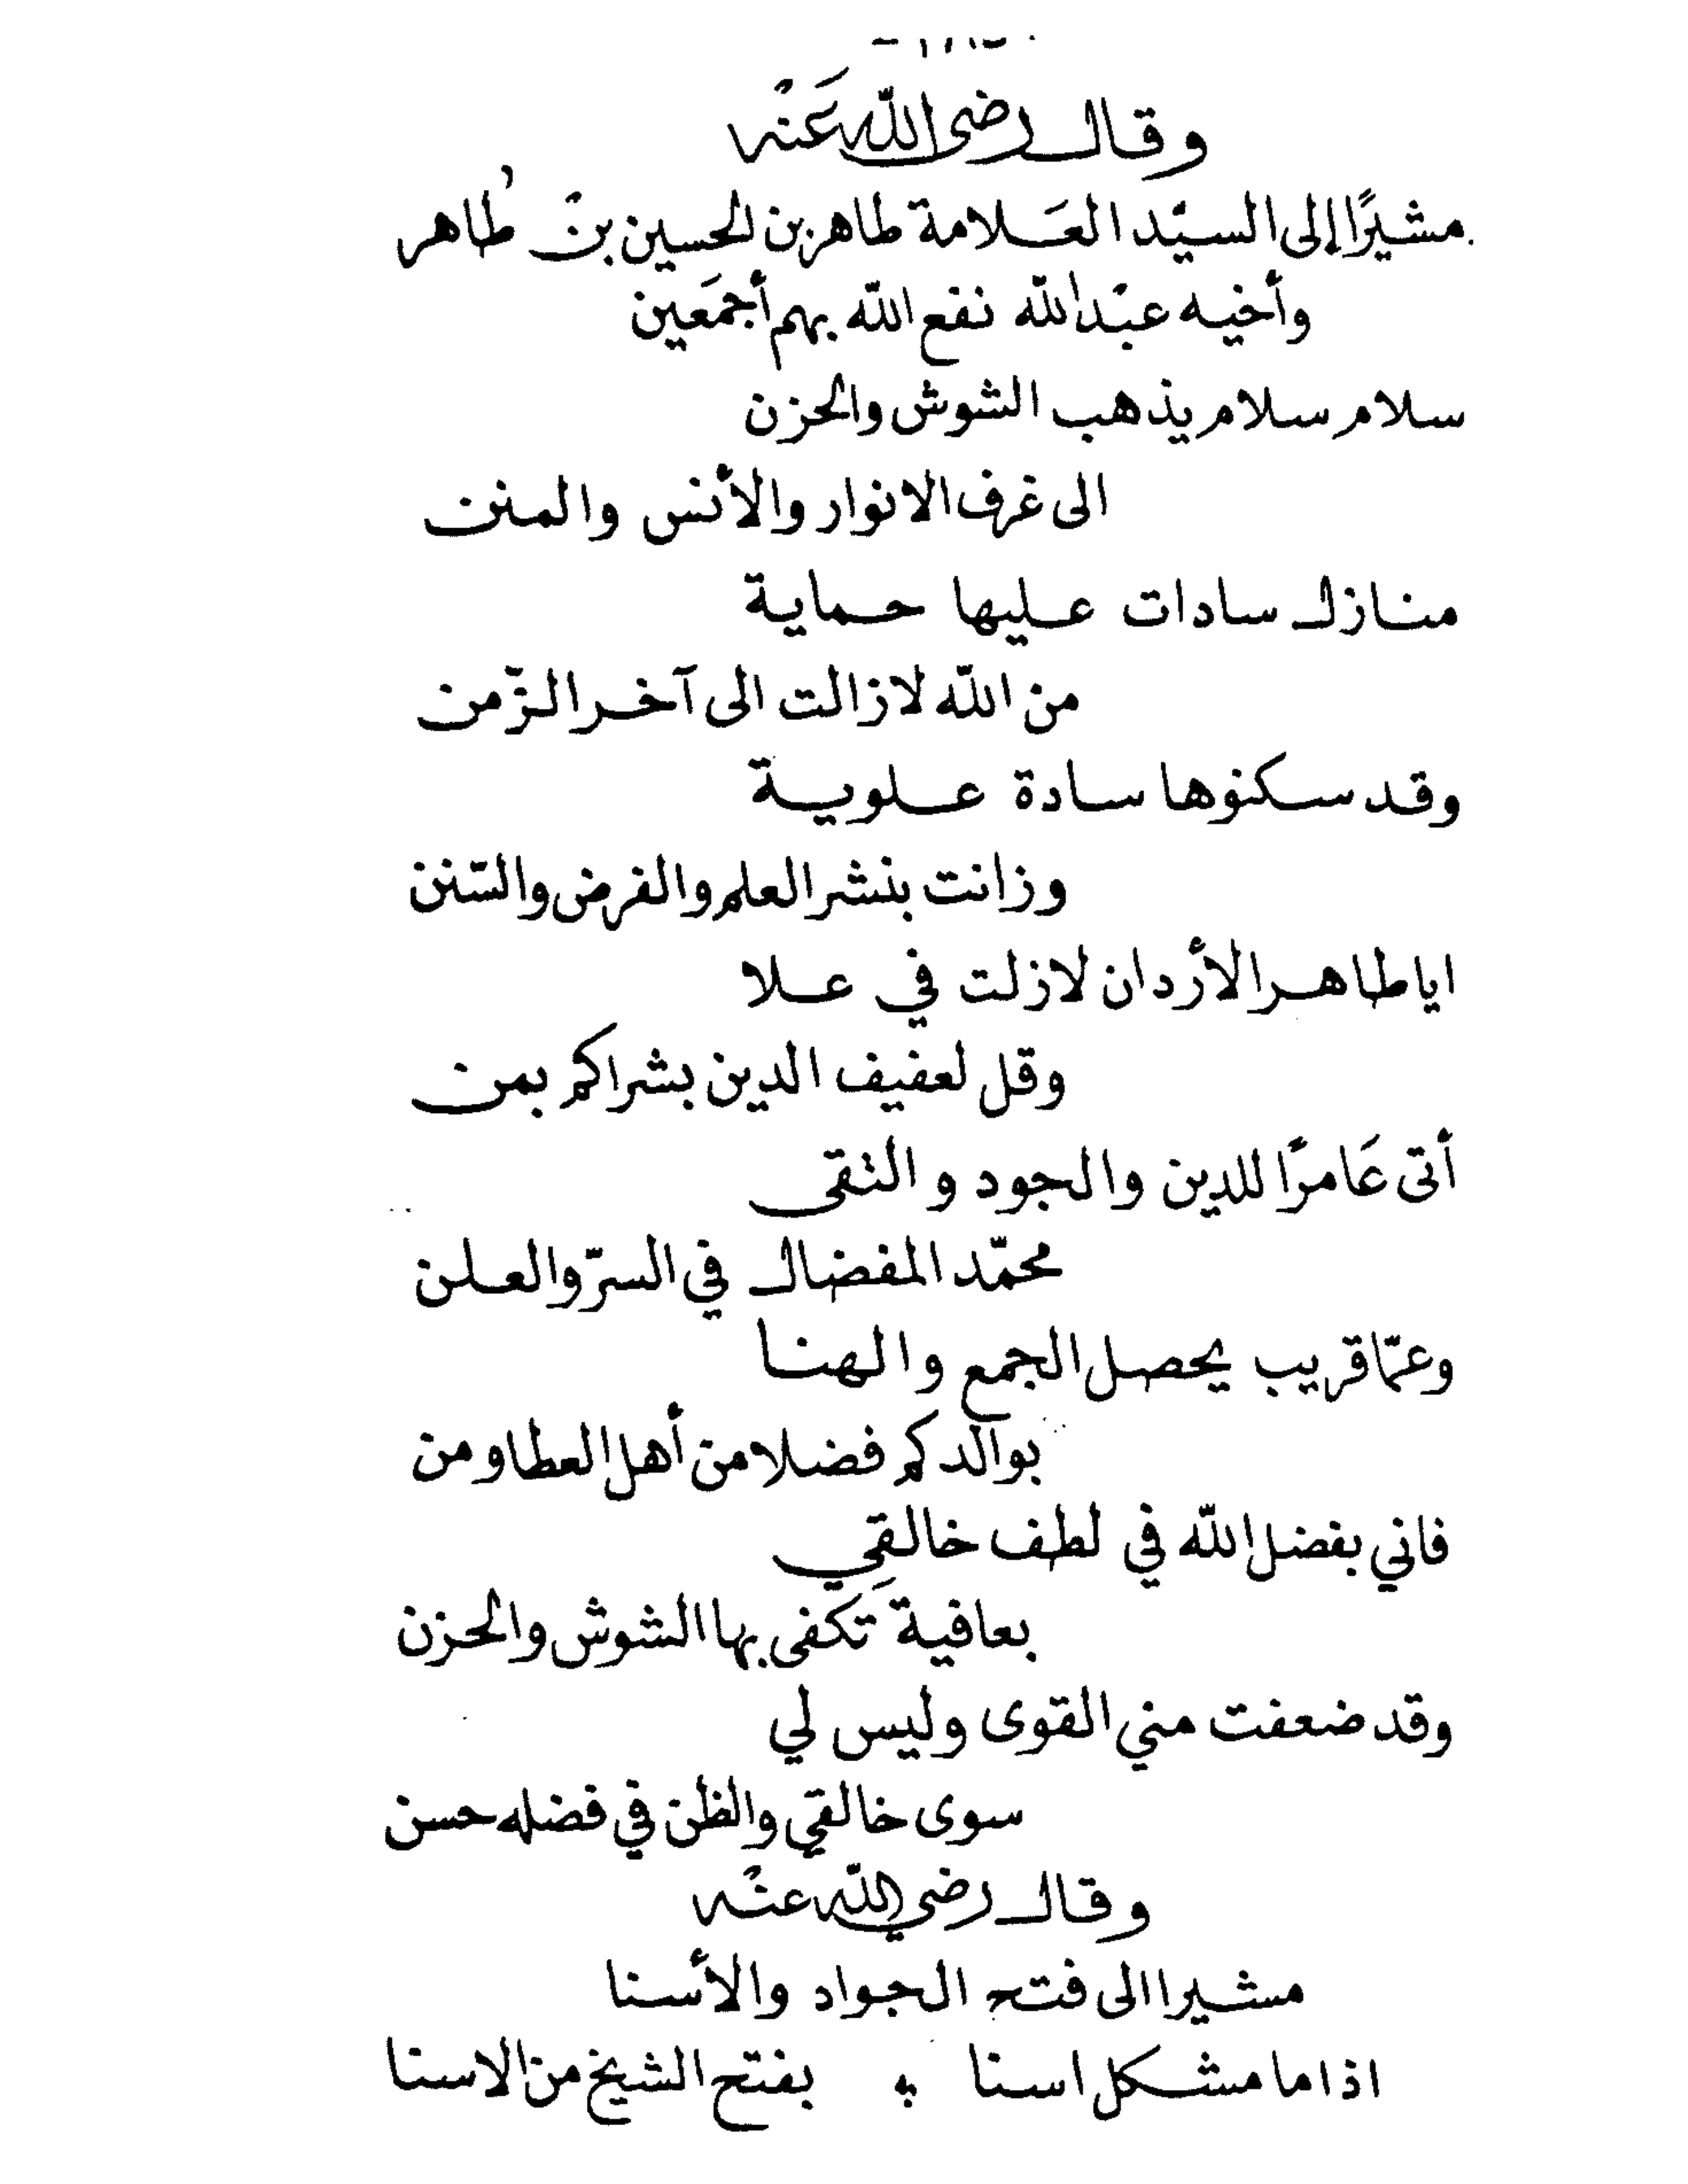 وقال رضى الله عَنْه
مشيرًا إلى السيّد العَلامة طاهر بن الحسين بن طاهر
وأخيه عبْد الله نفع الله بهم أجمَعين
سلام سلام يذهب الشوش والحزن
الى غرف الانوار والأنس والمنن
منازل سادات عليها حماية
من الله لازالت الى آخر الزّمن
وقد سكنوها سادة علوية
وزانت بنشر العلم والفرض والسّنن
ايا طاهر الأردان لازلت في علا
وقل لعفيف الدين بشراكم بمن
أتى عَامرًا للدين والجود والتقى
محمّد المفضال في السرّ والعلن
وعمّا قريب يحصل الجمع والهنا
بوالدكم فضلا من أهل العطا ومن
فاني بفضل الله في لطف خالقِي
بعافية تَكفى بها الشوش والحزن
وقد ضعفت مني القوى وليس لي
سوى خالقي والظن في فضله حسن
وقال رضي الله عنْه
مشيرا الى فتح الجواد والأسنا
اذا ما مشكل اسنا ؞ بفتح الشيخ من الاسنا